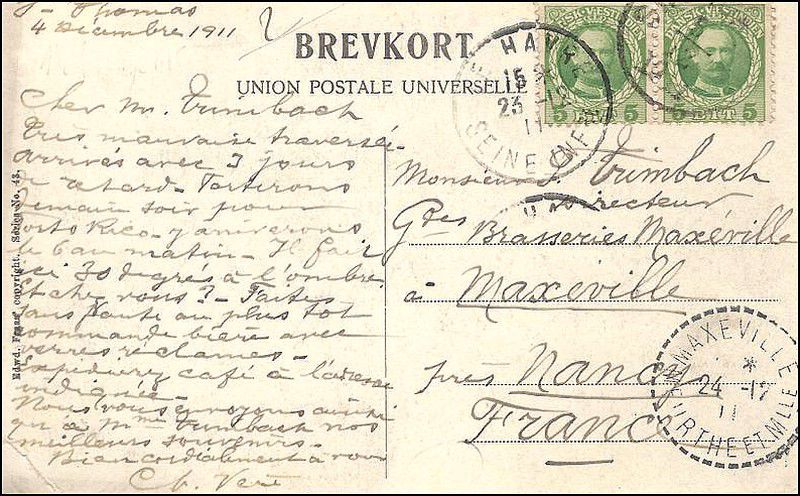 St Thomas
4 Décembre 1911
BREVKORT
UNION POSTALE UNIVERSELLE
Cher Mr. Trimbach
Très mauvaise traversée.
arrivés avec 3 jours
de retard. Partirons
demain soir pour
Porto Rico - y arriverons
le 6 au matin - Il fait
ici 30 degrés à l'ombre.
Et chez vous ? - Faites
sans faute au plus tôt
commande bière avec
verres réclames -
Expédierez café à l'adresse
indiquée -
Nous vous envoyons ainsi
qu'à Mme Trimbach nos
meilleurs souvenirs -
Bien cordialement à vous
Edwd. Fraas, copyright. Series No. 43.
DANSK VESTINDIEN
5 BIT 5
DANSK VESTINDIEN
5 BIT 5
HAVRE
15
23 -12
11
SEINE INFRE
Monsieur Trimbach
Directeur
Gdes Brasseries Maxéville
à Maxéville
près Nancy
France
MAXEVILLE
*
24 -12
11
MEURTHE ET MLLE